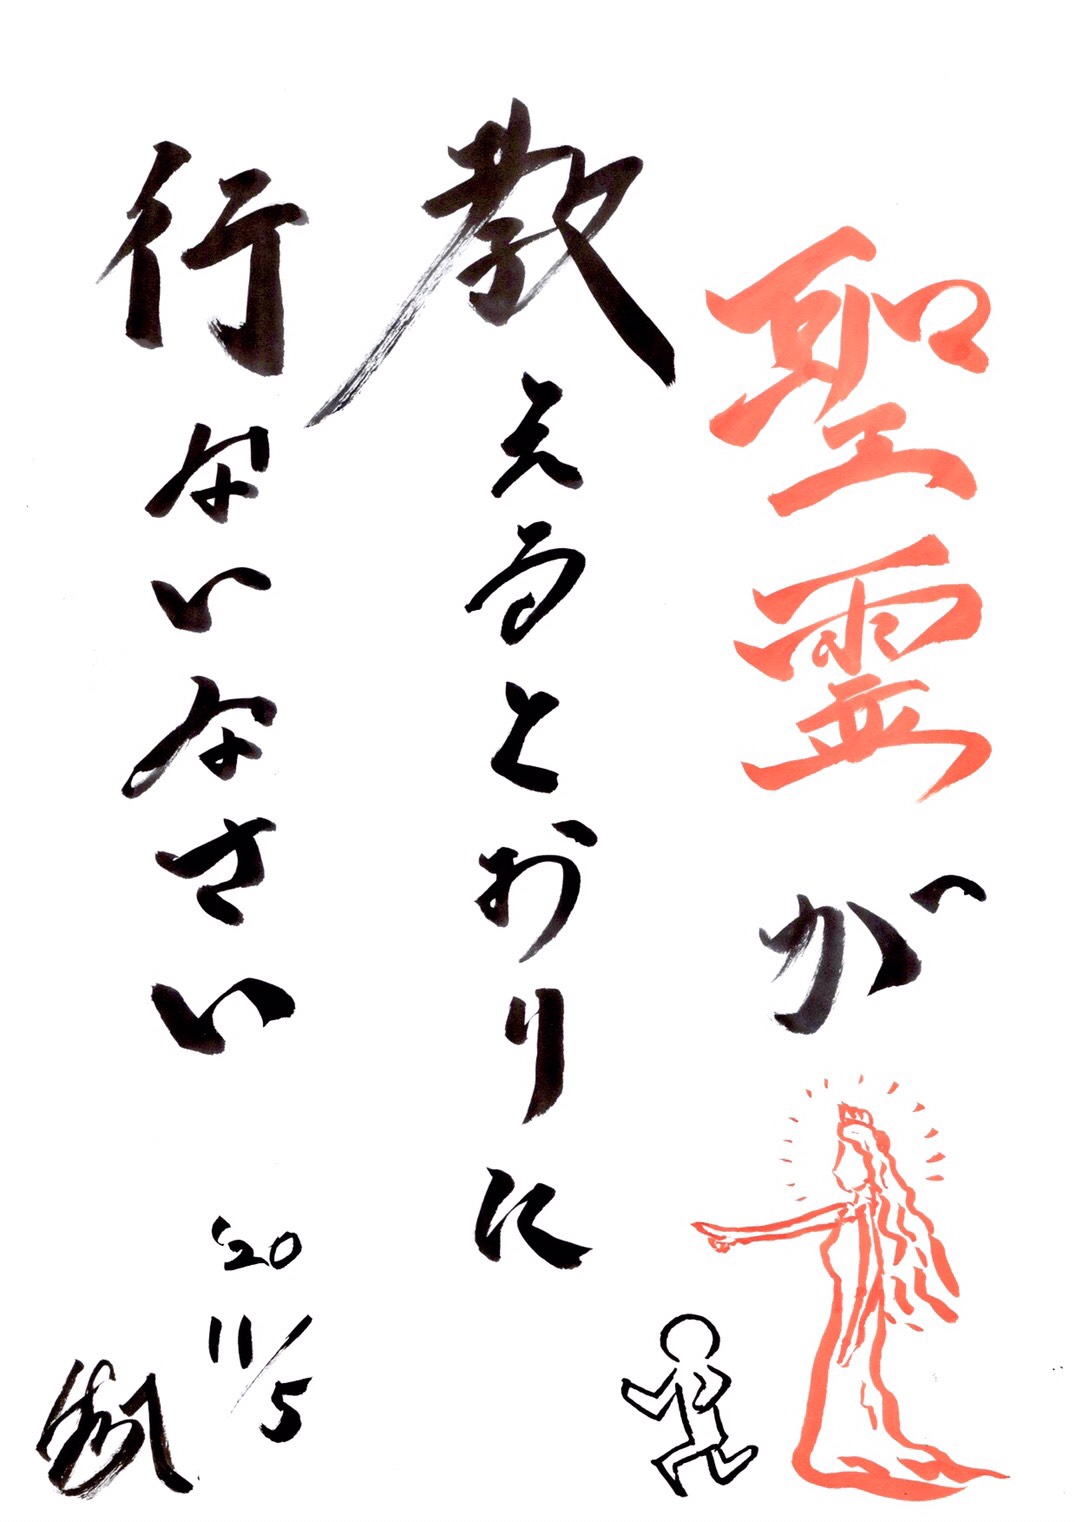 聖霊が
教えるとおりに
行ないなさい
'20
11/5